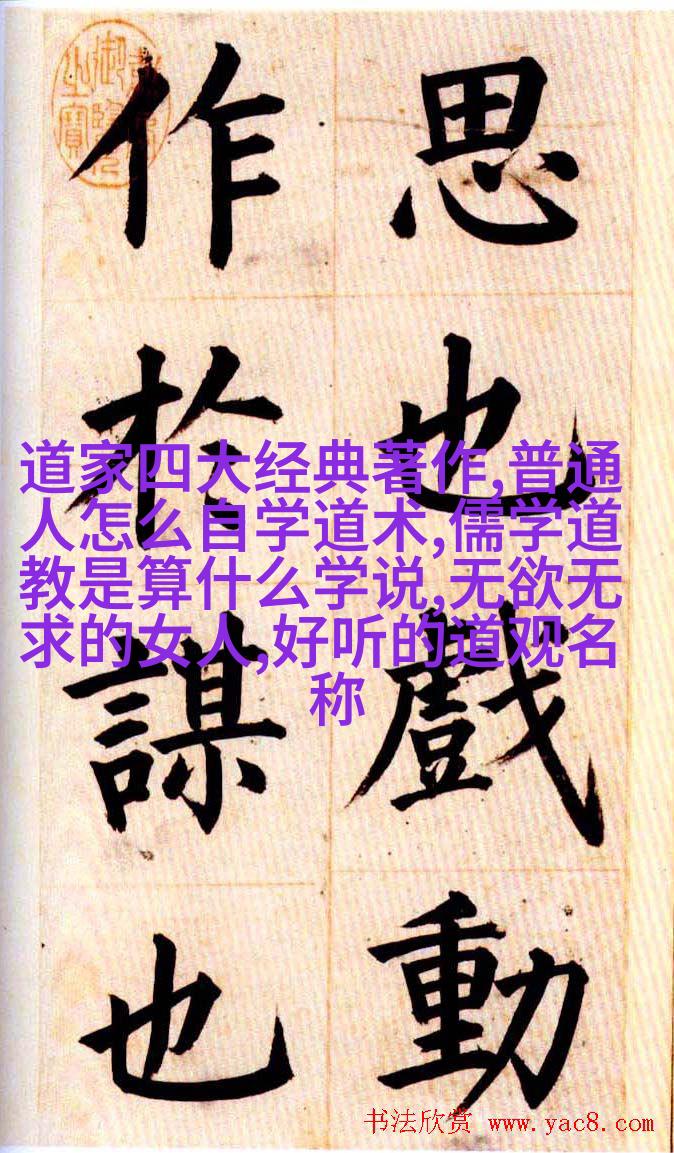 思也戲動
作於謀也
道家四大经典著作,普通
人怎么自学道术,儒学道
教是算什么学说,无欲无
求的女人,好听的道观名
称
书法欣赏 www.yac8.com